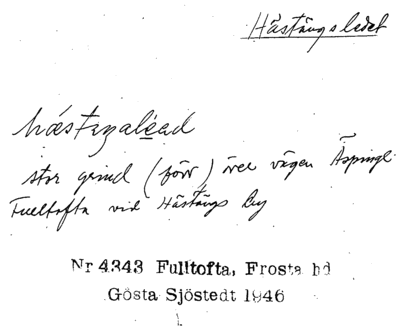 Hästängsledet
hästaγaléad
stor grind (förr) över vägen Äspinge
Fulltofta vid Hästängs by
Nr 4343 Fulltofta, Frosta hd
Gösta Sjöstedt 1946